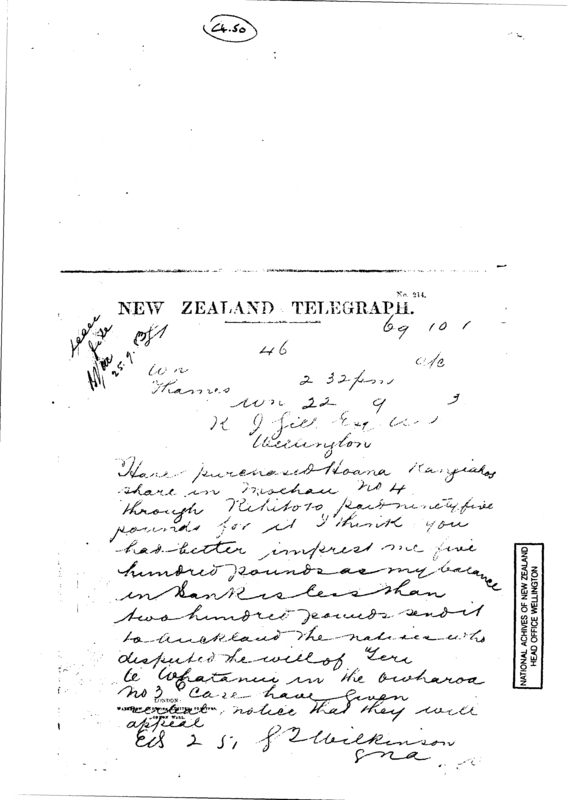 C4.50
No. 214.
NEW ZEALAND TELEGRAPH.
69 10 1
46
25.9.
Wn
Thames 2 32pm
Wn 22 9 3
R J Gill Esq
Wellington
Have purchased Hoana Rangiahos
share in Moehau No 4
through Kihitoto paid ninety five
pounds for it I think you
had better imprest me five
hundred pounds as my balance
in Bank is less than
two hundred pounds send it
to Auckland the natives who
disputed the will of Teri
te Whatanui in the Owharoa
No 3 Case have given
notice that they will
appeal
2 51 G T Wilkinson
gna
NATIONAL ACHIVES OF NEW ZEALAND
HEAD OFFICE WELLINGTON